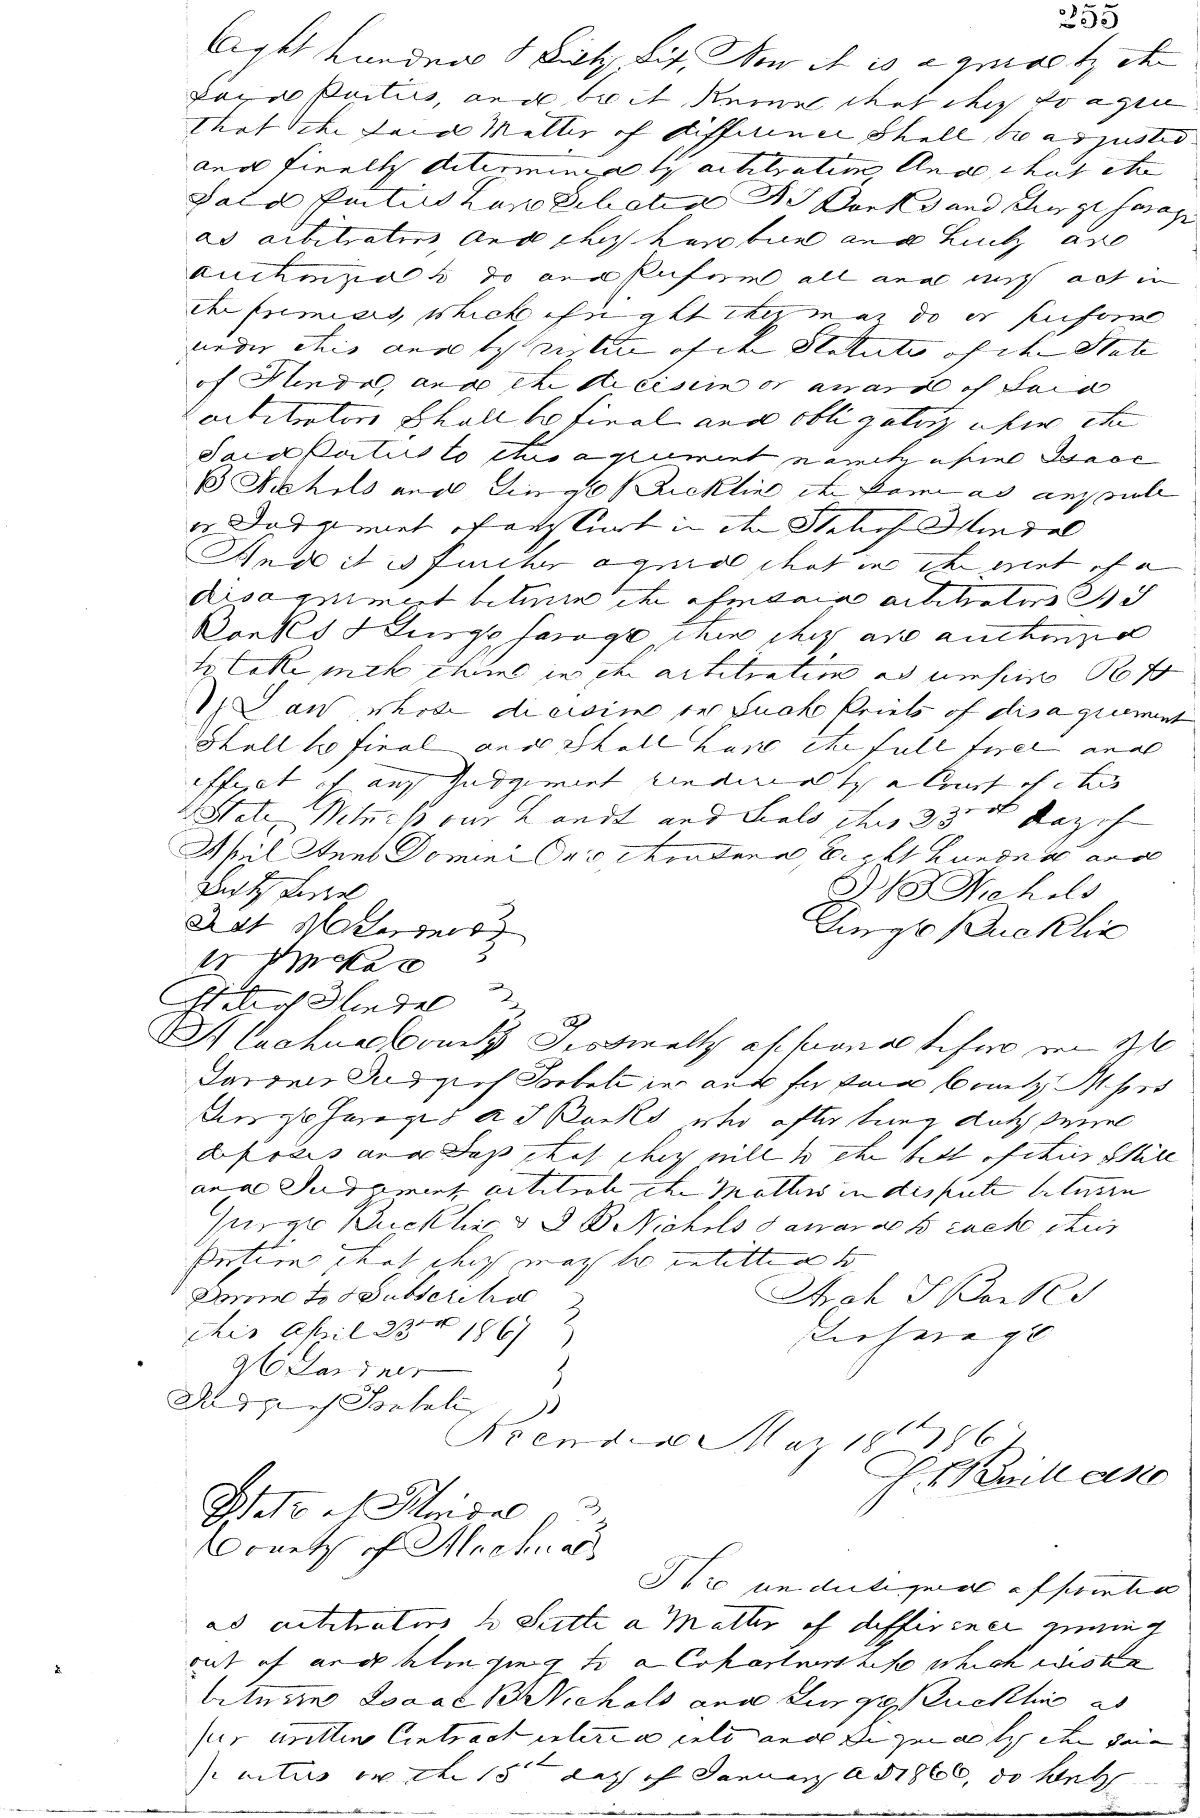 255
Eight hundred & Sixty Six, Now it is agreed by the
Said Parties, and be it Known that they do agree
that the Said Matter of difference Shall be adjusted
and finally determined by arbitration, And that the
Said Parties have Selected A J Banks and George Savage
as arbitrators, And they have been and hereby are
authorized to do and Perform all and every act in
the premises, which of right they may do or perform
under this and by virtue of the Statutes of the State
of Florida, and the decision or award of Said
arbitrators Shall be final and obligatory upon the
Said Parties to this agreement namely upon Isaac
B Nichols and George Bucklin the Same as any rule
or Judgement of any Court in the State of Florida
And it is further agreed that in the event of a
disagreement between the aforesaid arbitrators A J
Banks & George Savage, then they are authorized
to take with them in the arbitration as umpire R H
Law whose decision on Such Points of disagreement
Shall be final and Shall have the full force and
effect of any Judgement rendered by a Court of this
State, Witness our hands and Seals this 23rd day of
April Anno Domini One thousand, Eight hundred and
Sixty Seven
I B Nichols
Attest Gardner
George Bucklin
State of Florida
Alachua County Personally appeared before me
Gardner Judge of Probate in and for Said County Messrs
George Savage & A J Banks who after being duly Sworn
deposes and Says that they will to the best of their Skill
and Judgement, arbitrate the Matters in dispute between
George Bucklin & I B Nichols & award to each their
Portion that they may be entitled to
Sworn to & Subscribed
Arch J Banks
this April 23rd 1867
Geo Savage
Gardner
Judge of Probate
Recorded May 18th 1867
State of Florida
County of Alachua
The undersigned appointed
as arbitrators to Settle a Matter of difference growing
out of and belonging to a Copartnership which existed
between Isaac B Nichols and George Bucklin as
per written Contract entered into and Signed by the Said
parties on the 15th day of January AD 1866, do hereby